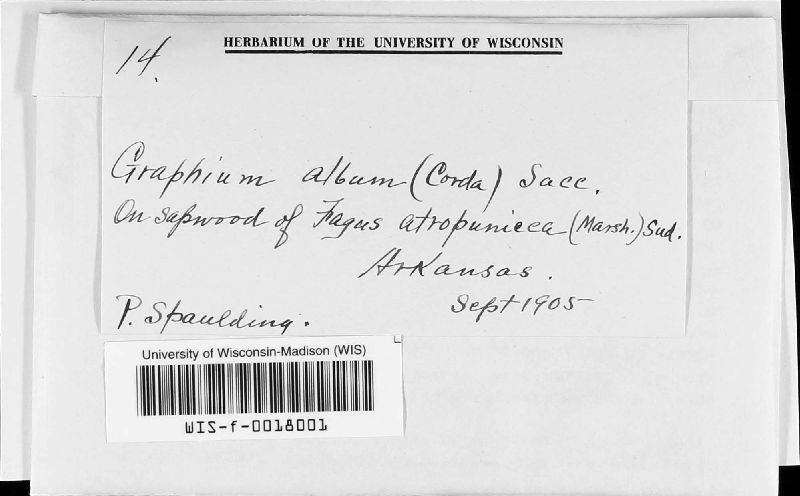 HERBARIUM OF THE UNIVERSITY OF WISCONSIN
14.
Graphium album (Corda) Sacc.
On sapwood of Fagus atropunicea (Marsh.) Sud.
Arkansas.
Sept 1905
P. Spaulding.
University of Wisconsin-Madison (WIS)
WIS-f-0018001